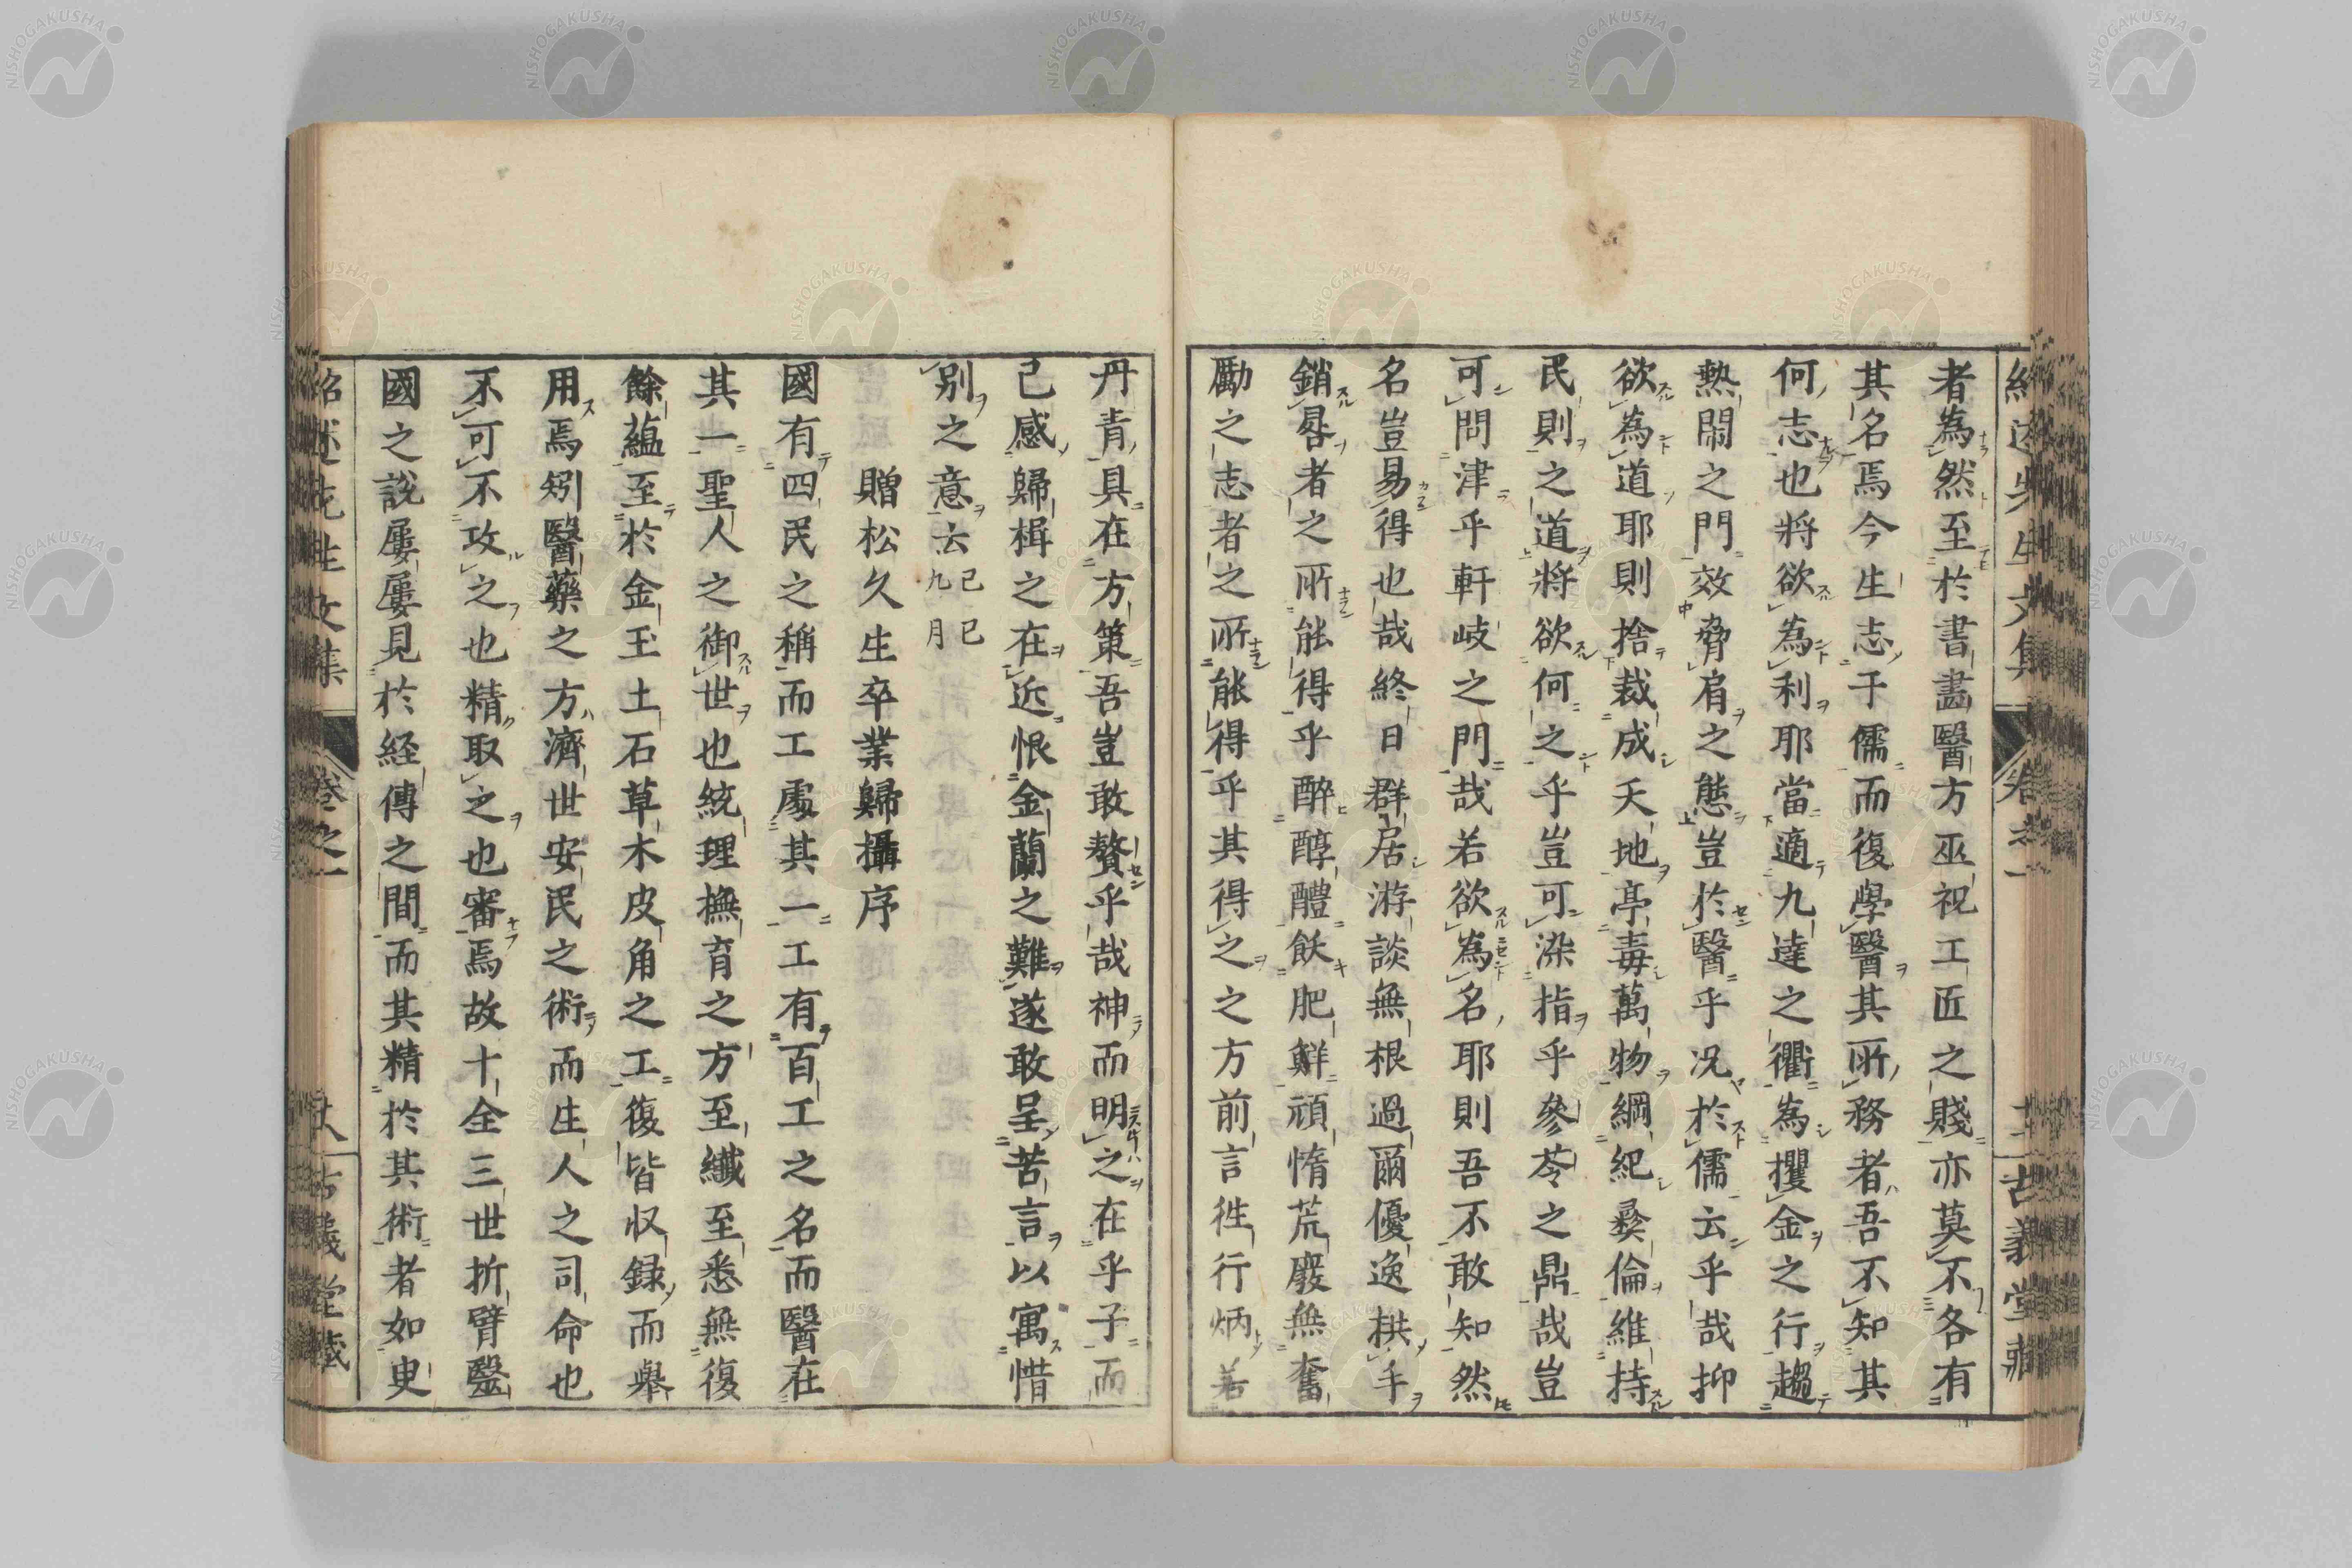 者為然至於書畵醫方巫祝工匠之賤亦莫不各有
其名焉今生志于儒而復學醫其所務者吾不知其
何志也將欲為利耶當適九達之衢為攫金之行趨
熱閙之門效脅肩之態豈於醫乎况於儒云乎哉抑
欲為道耶則捨裁成天地亭毒萬物綱紀彜倫維持
民則之道將欲何之乎豈可染指乎參苓之鼎哉豈
可問津乎軒岐之門哉若欲為名耶則吾不敢知然
名豈易得也哉終日群居游談無根過爾優逸拱手
銷晷者之所能得乎醉醇醲飫肥鮮頑惰荒廢無奮
勵之志者之所能得乎其得之之方前言徃行炳若
丹青具在方策吾豈敢贅乎哉神而明之在乎子而
己感歸楫之在近恨金蘭之難遂敢呈苦言以寓惜
別之意云己巳九月
贈松久生卒業歸攝序
國有四民之稱而工處其一工有百工之名而醫在
其一聖人之御世也統理撫育之方至纎至悉無復
餘蘊至於金玉土石草木皮角之工復皆収録而舉
用焉矧醫藥之方濟世安民之術而生人之司命也
不可不攻之也精取之也審焉故十全三世折臂毉
國之説屢屢見於経傳之間而其精於其術者如史
紹述先生文集 卷之一 古義堂藏
NISHOGAKUSHA